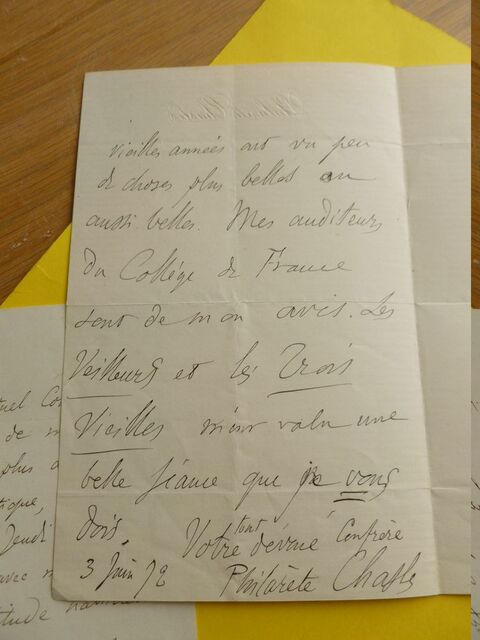 vieilles années ont vu peu
de choses plus belles ou
aussi belles. Mes auditeurs
du Collége de France
sont de mon avis. Les
Veilleurs et les Trois
Vieilles m'ont valu une
belle séance que je vous
dois.
Votre tout dévoué Confrère
3 Juin 72 Philarète Chasles
de m
plus a
tique,
Jeudi
avec